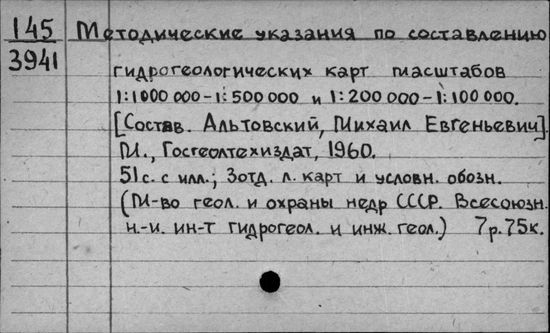 145 Методические указания по составлению
3941
гидрогеологических карт масштабов
1:1000 000-1:500 000 и 1:200 000-1:100 000.
[Состав. Альтовский, Михаил Евгеньевич].
М., Госгеолтехиздат, 1960.
51 с. с илл.; 3 отд. л. карт и условн. обозн.
(М-во геол. и охраны недр СССР. Всесоюзн.
н.-и. ин-т гидрогеол. и инж. геол.) 7р.75к.